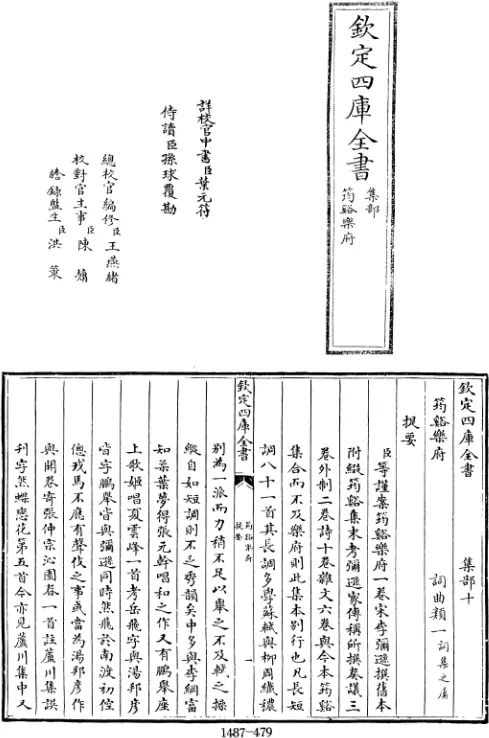 欽定四庫全書
集部
筠谿樂府
詳校官中書臣葉元符
侍讀臣孫球覆勘
總校官編修臣王燕緒
校對官主事臣陳墉
謄錄監生臣洪䇲
欽定四庫全書
集部十
筠谿樂府
詞曲類一詞集之屬
提要
臣等謹案筠谿樂府一卷宋李彌遜撰舊本
附綴筠谿集末考彌遜家傳稱所撰奏議三
卷外制二卷詩十卷雜文六卷與今本筠谿
集合而不及樂府則此集本別行也凡長短
調八十一首其長調多學蘇軾與柳周纖穠
別為一派而力稍不足以舉之不及軾之操
縱自如短調則不乏秀韻矣中多與李綱富
知柔葉夢得張元幹唱和之作又有鵬舉座
上歌姬唱夏雲峰一首考岳飛字與湯邦彥
皆字鵬舉皆與彌遜同時然飛於南渡初倥
傯戎馬不應有聲伎之事或當為湯邦彥作
與開卷寄張仲宗沁園春一首註蘆川集誤
刊字然蝶戀花第五首今亦見蘆川集中又
欽定四庫全書
筠谿樂府
提要
一
1487-479